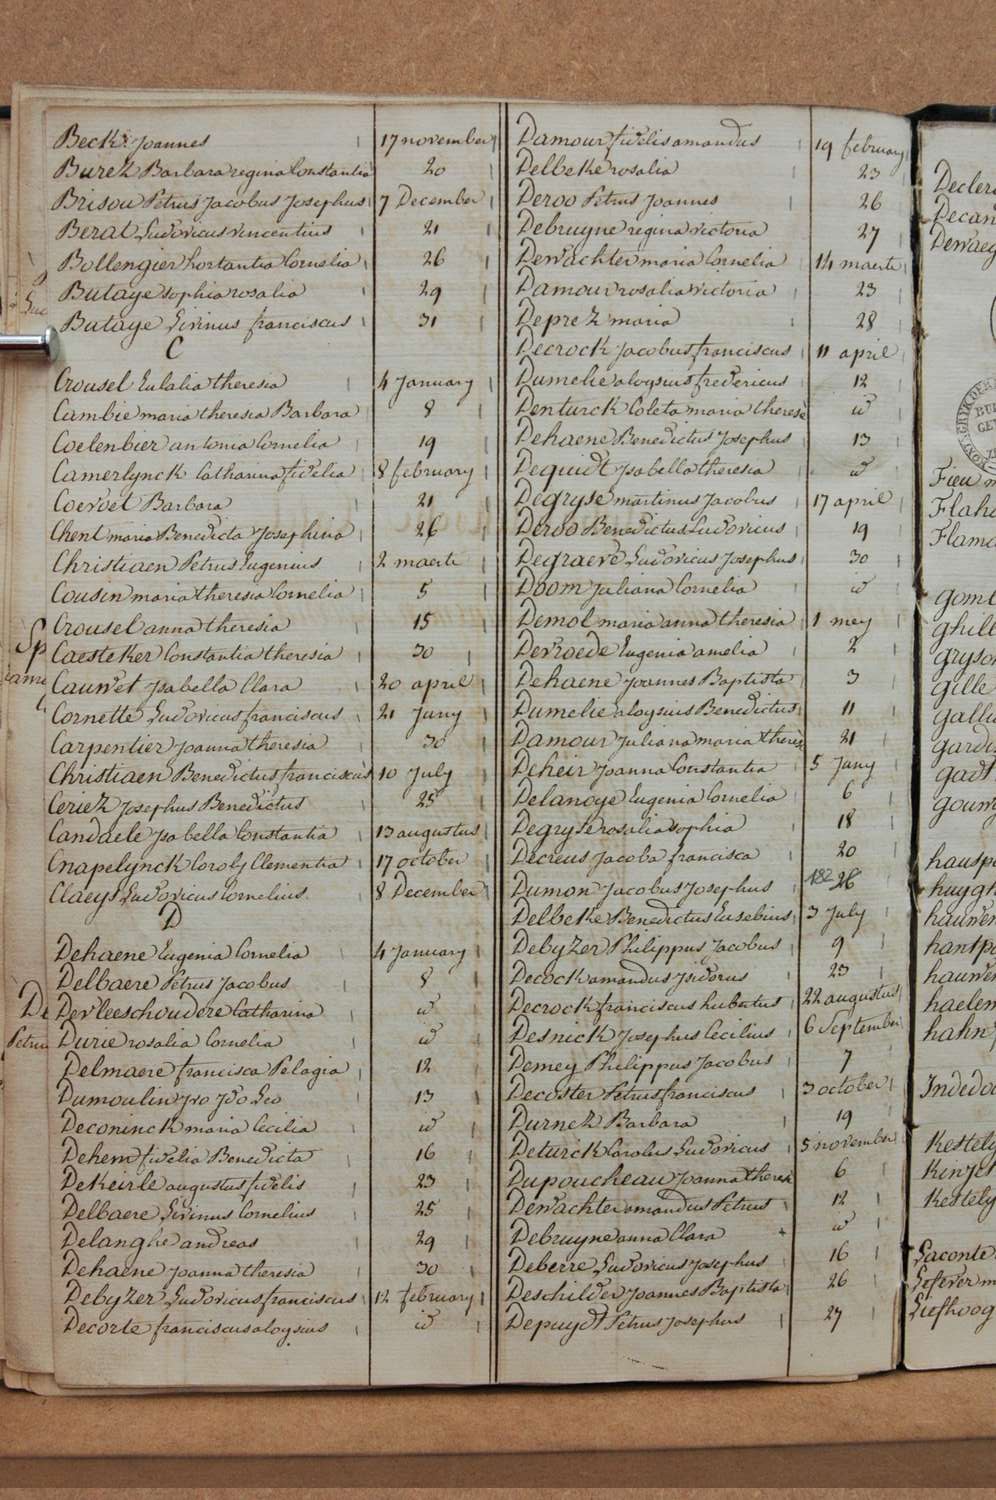 Beck Joannes 17 november
Burez Barbara regina Constantia 20
Brisou Petrus Jacobus Josephus 7 December
Berat Ludovicus vincentius 21
Bollengier hortantia Cornelia 26
Butaye sophia rosalia 29
Butaye Livinus franciscus 31
C
Crousel Eulalia theresia 4 January
Cambie maria theresia Barbara 8
Coelenbier antonia Cornelia 19
Camerlynck Catharina fidelia 8 february
Coevoet Barbara 21
Chent maria Benedicta Josephina 26
Christiaen Petrus Eugenius 2 maerte
Cousin maria theresia Cornelia 5
Crousel anna theresia 15
Caesteker Constantia theresia 30
Cauwet Isabella Clara 20 april
Cornette Ludovicus franciscus 21 Juny
Carpentier Joanna theresia 30
Christiaen Benedictus franciscus 10 July
Ceriez Josephus Benedictus 25
Candaele Isabella Constantia 13 augustus
Cnapelynck Caroly Clementia 17 october
Claeys Ludovicus Cornelius 8 December
D
Dehaene Eugenia Cornelia 4 January
Delbaere Petrus Jacobus 8
Devleeschoudere Catharina id
Durie rosalia Cornelia id
Delmaere francisca Pelagia 12
Dumoulin Ivo Leo 13
Deconinck maria Cecilia id
Dehem fidelia Benedicta 16
Dekeirle augustus fidelis 23
Delbaere Livinus Cornelius 25
Delanghe andreas 29
Dehaene Joanna theresia 30
Debyzer Ludovicus franciscus 12 february
Decorte franciscus aloysius id
Damour fidelis amandus 19 february
Delbeke rosalia 23
Deroo Petrus Joannes 26
Debruyne regina victoria 27
Dewachter maria Cornelia 14 maerte
Damour rosalia victoria 23
Deprez maria 28
Decrock Jacobus franciscus 11 april
Dumelie aloysius fredericus 12
Denturck Coleta maria therese id
Dehaene Benedictus Josephus 13
Dequidt Isabella theresia id
Degryse martinus Jacobus 17 april
Deroo Benedictus Ludovicus 19
Degraeve Ludovicus Josephus 30
Doom Juliana Cornelia id
Demol maria anna theresia 1 mey
Devroede Eugenia amelia 2
Dehaene Joannes Baptista 3
Dumelie aloysius Benedictus 11
Damour Juliana maria theres 21
Deheir Joanna Constantia 5 Juny
Delanoye Eugenia Cornelia 6
Degryse rosalia sophia 18
Decreus Jacoba francisca 20
Dumon Jacobus Josephus 26
Delbeke Benedictus Eusebius 3 July
Debyzer Philippus Jacobus 9
Decock amandus Isidorus 23
Decrock franciscus hubertus 22 augustus
Desnick Josephus Cecilius 6 September
Demey Philippus Jacobus 7
Decoster Petrus franciscus 3 october
Durnez Barbara 19
Deturck Carolus Ludovicus 5 november
Dupoucheau Joanna theresi 6
Dewachter amandus Petrus 12
Debruyne anna Clara id
Deberre Ludovicus Josephus 16
Deschilder Joannes Baptista 26
Depuydt Petrus Josephus 27